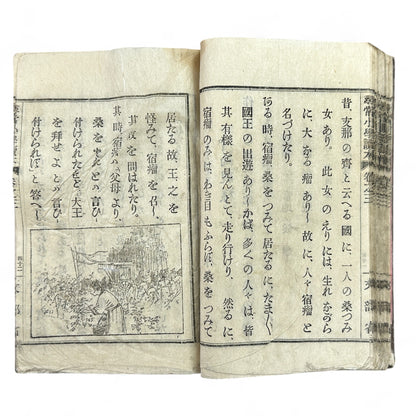 尋常小學讀本 卷之三 文部省
昔、支那の齊と云へる國に、一人の桑つみ
女あり、此女のえりには、生れながら
に、大なる瘤あり、故に、人々宿瘤と
名づけたり。
ある時、宿瘤、桑をつみて居たるに、たま〱
國王の出遊ありしかば、多くの人々は、皆
其有樣を見んとて、走り行けり、然るに、
宿瘤のみは、わき目もふらず、桑をつみて
居たる故、王之を
怪みて、宿瘤を召し、
其故を問はれたり、
其時、宿瘤、父母より、
桑をつとの言ひ
付けられたれども、大王
を拜せよとの言ひ
付けられずと答へし
文部省